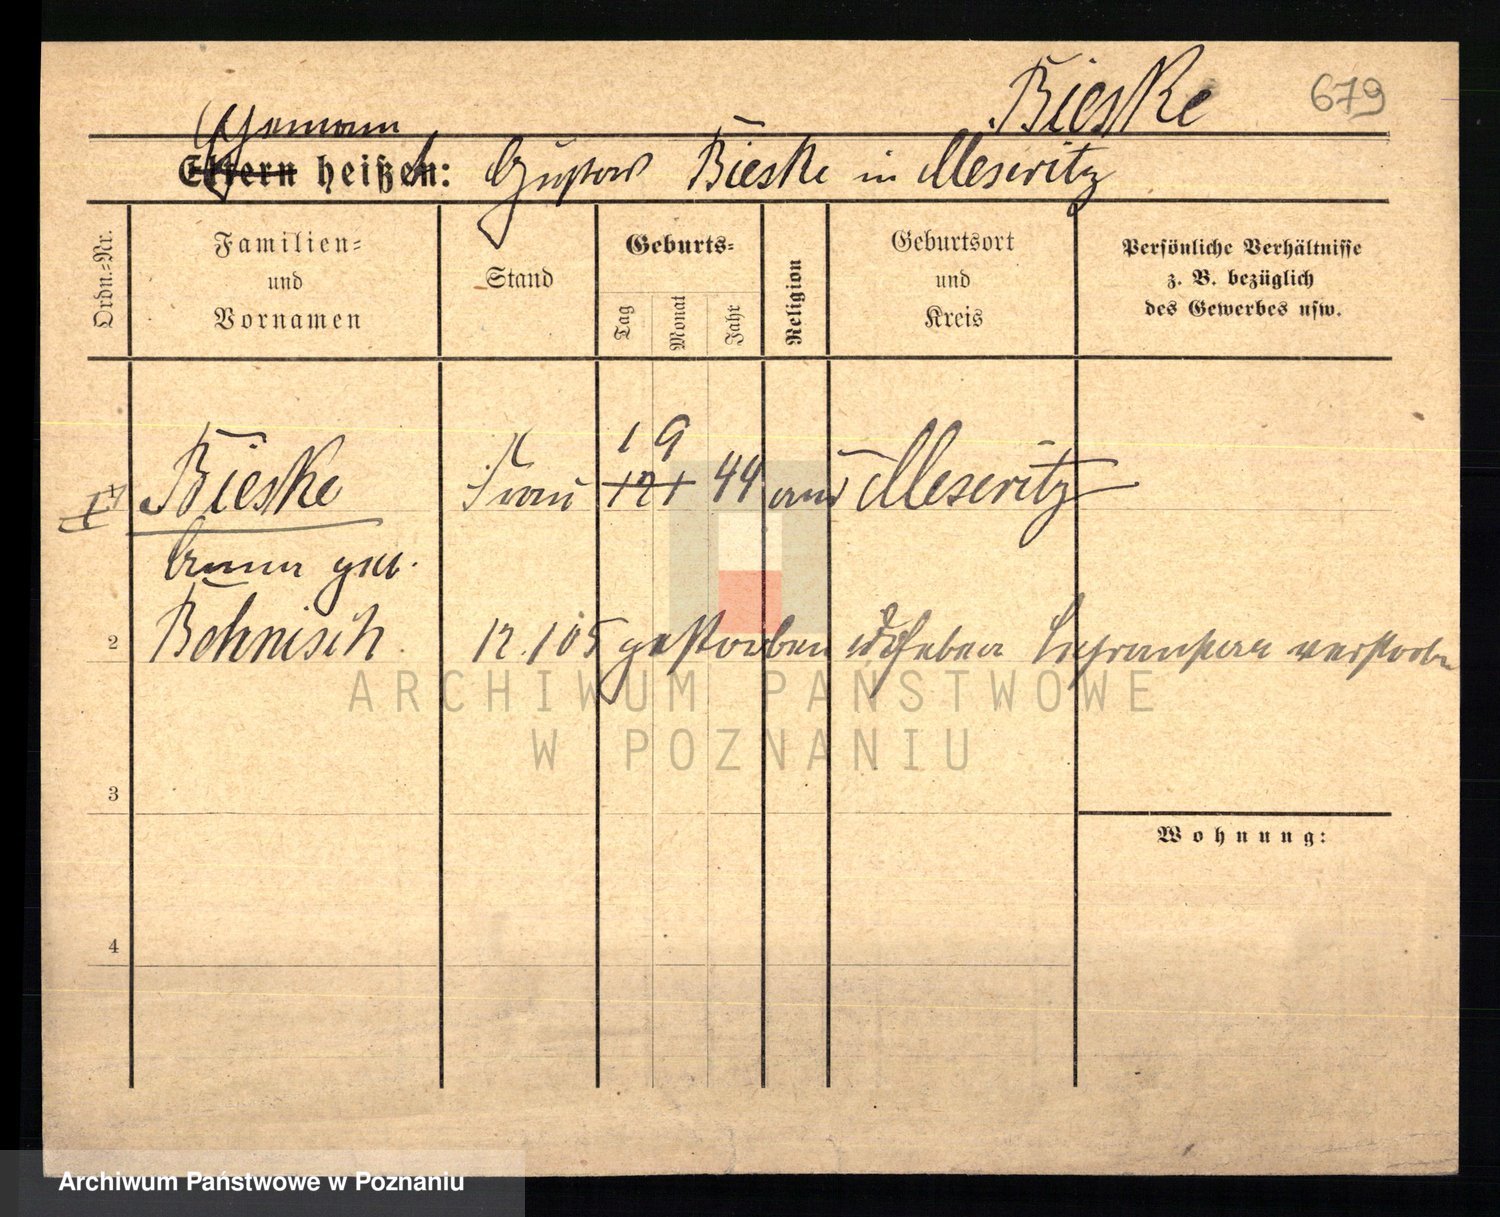 Bieske 679
Ehemann
Eltern heißen: Gustav Bieske in Meseritz
Ordn.-Nr.
Familien-
und
Vornamen
Stand
Geburts-
Tag
Monat
Jahr
Religion
Geburtsort
und
Kreis
Persönliche Verhältnisse
z. B. bezüglich
des Gewerbes usw.
1 9
Bieske Frau 121 44 Meseritz
geb.
2 Bohnisch. 12.1 05 gestorben
3
Wohnung:
4
ARCHIWUM PAŃSTWOWE
W POZNANIU
Archiwum Państwowe w Poznaniu